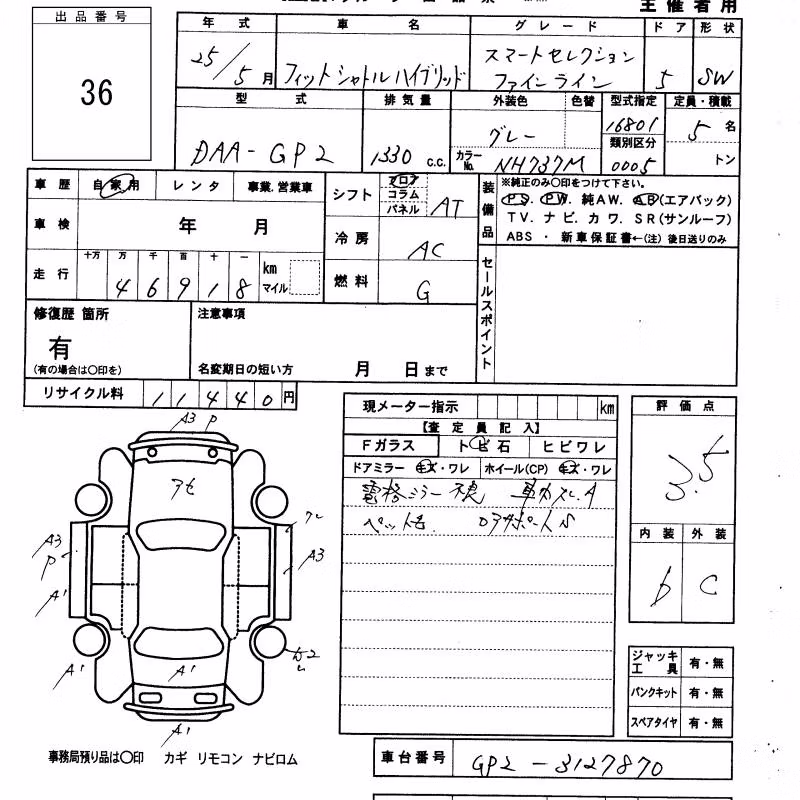 主催者用
出品番号
36
年式 車名 グレード ドア 形状
25/5月 フィットシャトルハイブリッド スマートセレクション ファインライン 5 SW
型式 排気量 外装色 色替 型式指定 定員・積載
DAA-GP2 1330 c.c. グレー 16801 5名
カラーNo. NH737M 類別区分 0005 トン
車歴 自家用 レンタ 事業.営業車
シフト フロア コラム パネル AT
装備品 ※純正のみ〇印をつけて下さい。
PS. PW. 純AW. AB(エアバック)
TV. ナビ. カワ. SR(サンルーフ)
ABS ・ 新車保証書←(注) 後日送りのみ
車検 年 月
冷房 AC
走行 十万 万 千 百 十 一
46918 km マイル
燃料 G
セールスポイント
修復歴 箇所
有
(有の場合は〇印を)
注意事項
名変期日の短い方 月 日まで
リサイクル料 11440円
現メーター指示 km
【査定員記入】
Fガラス トビ石 ヒビワレ
ドアミラー キズ・ワレ ホイール(CP) キズ・ワレ
電格ミラー不良
ペット毛
評価点
3.5
内装 外装
b C
A3 P
アセ
A3
P
A1
A3
A1
A1
A1
ジャッキ工具 有・無
パンクキット 有・無
スペアタイヤ 有・無
事務局預り品は〇印 カギ リモコン ナビロム
車台番号 GP2-3127870